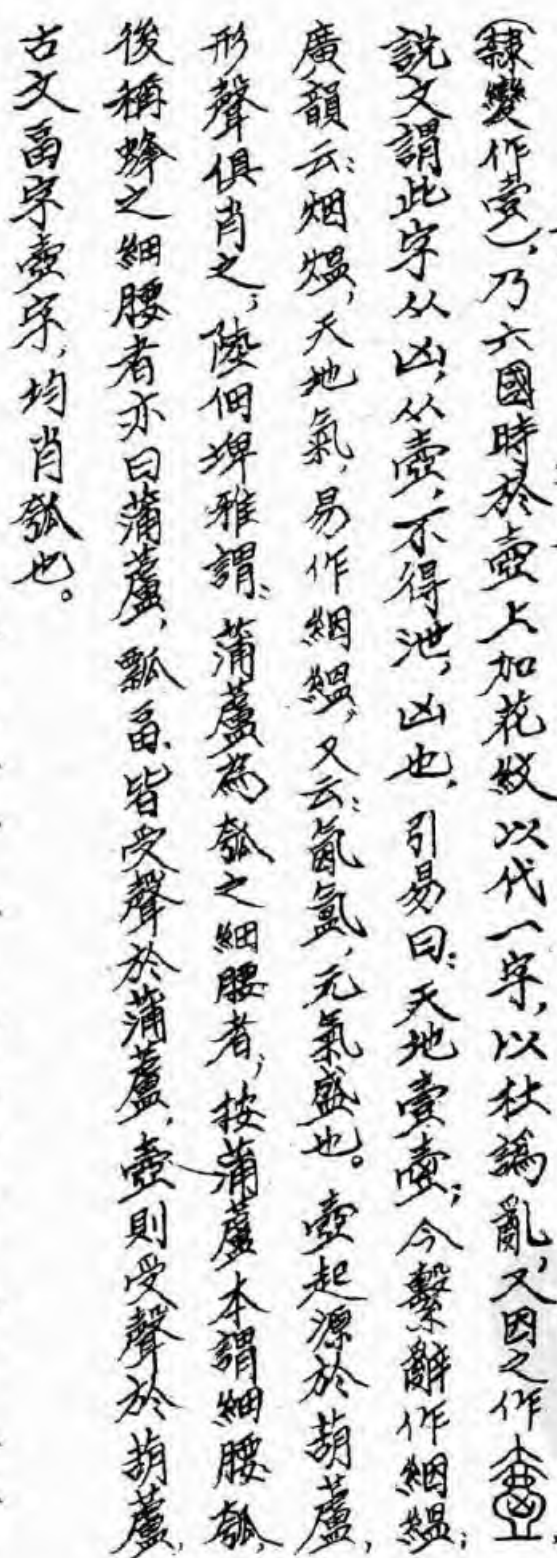 (隸變作壹)，乃六國時於壺上加花紋以代一字，以杜譌亂，又因之作
說文謂此字从凶从壺，不得泄，凶也，引易曰：天地壹壺；今繫辭作絪縕；
廣韻云：烟熅，天地氣，易作絪縕，又云：氤氳，元氣盛也。壺起源於葫蘆，
形聲俱肖之；陸佃埤雅謂：蒲蘆為瓠之細腰者；按蒲蘆本謂細腰瓠，
後稱蜂之細腰者亦曰蒲蘆，瓢畐皆受聲於蒲蘆，壺則受聲於葫蘆，
古文畐字壺字，均肖瓠也。